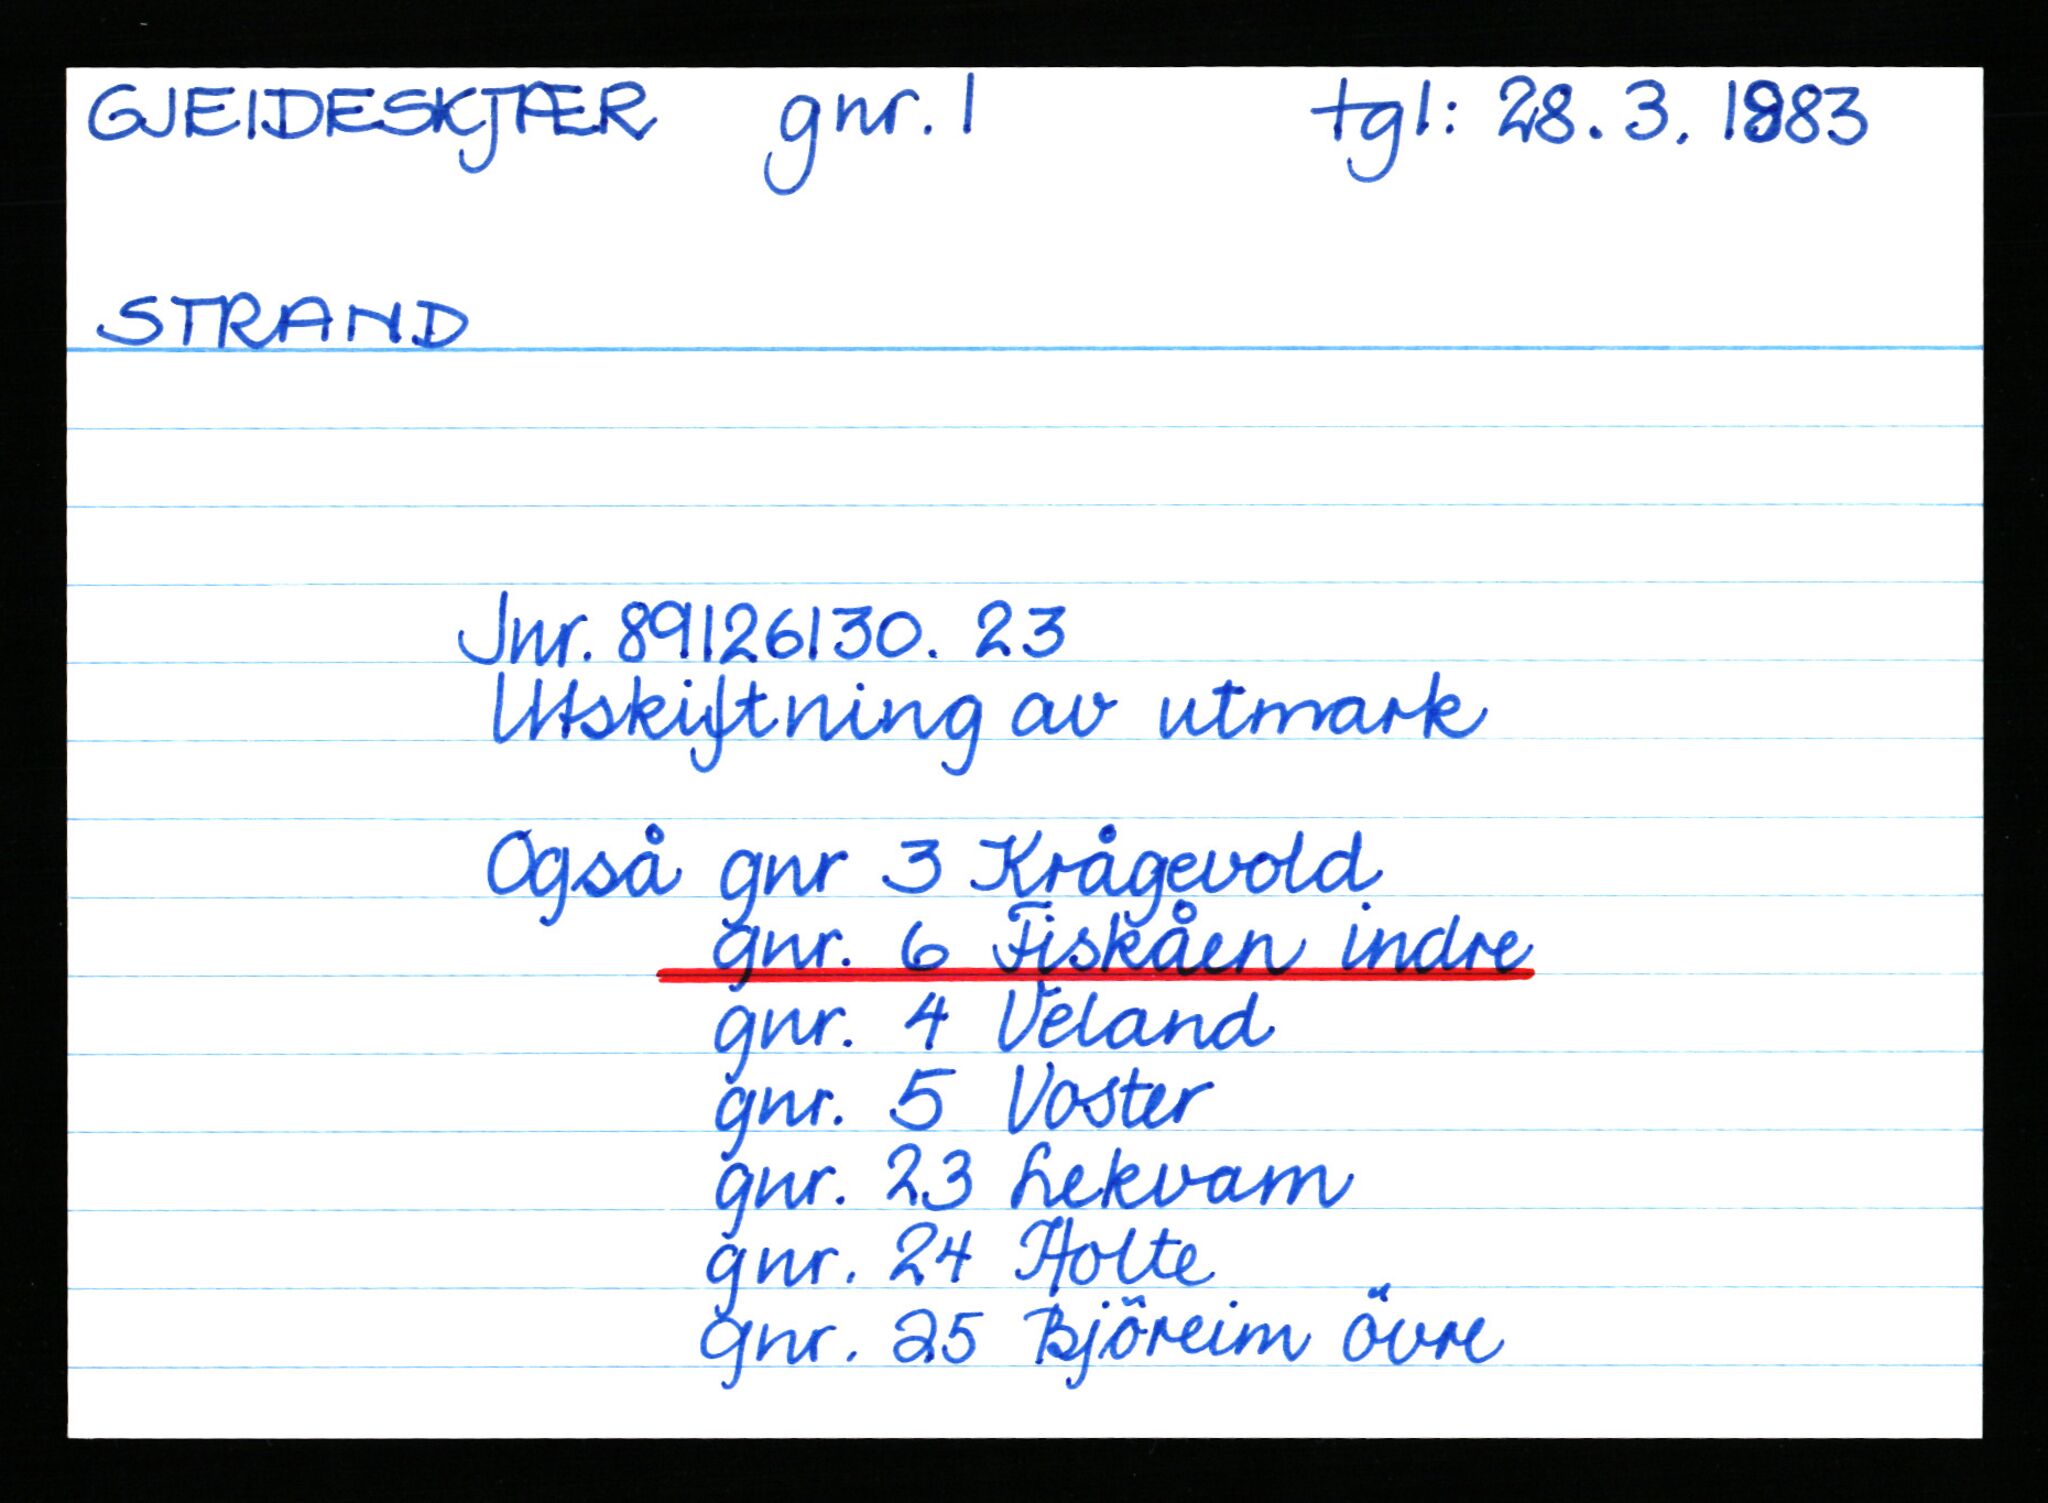 GJEIDESKJÆR gnr. 1 tgl: 28.3.1983
STRAND
Jnr. 89126130. 23
Utskiftning av utmark
Også gnr 3 Krågevold
gnr. 6 Fiskåen indre
gnr. 4 Veland
gnr. 5 Voster
gnr. 23 Lekvam
gnr. 24 Holte
gnr. 25 Björeim övre